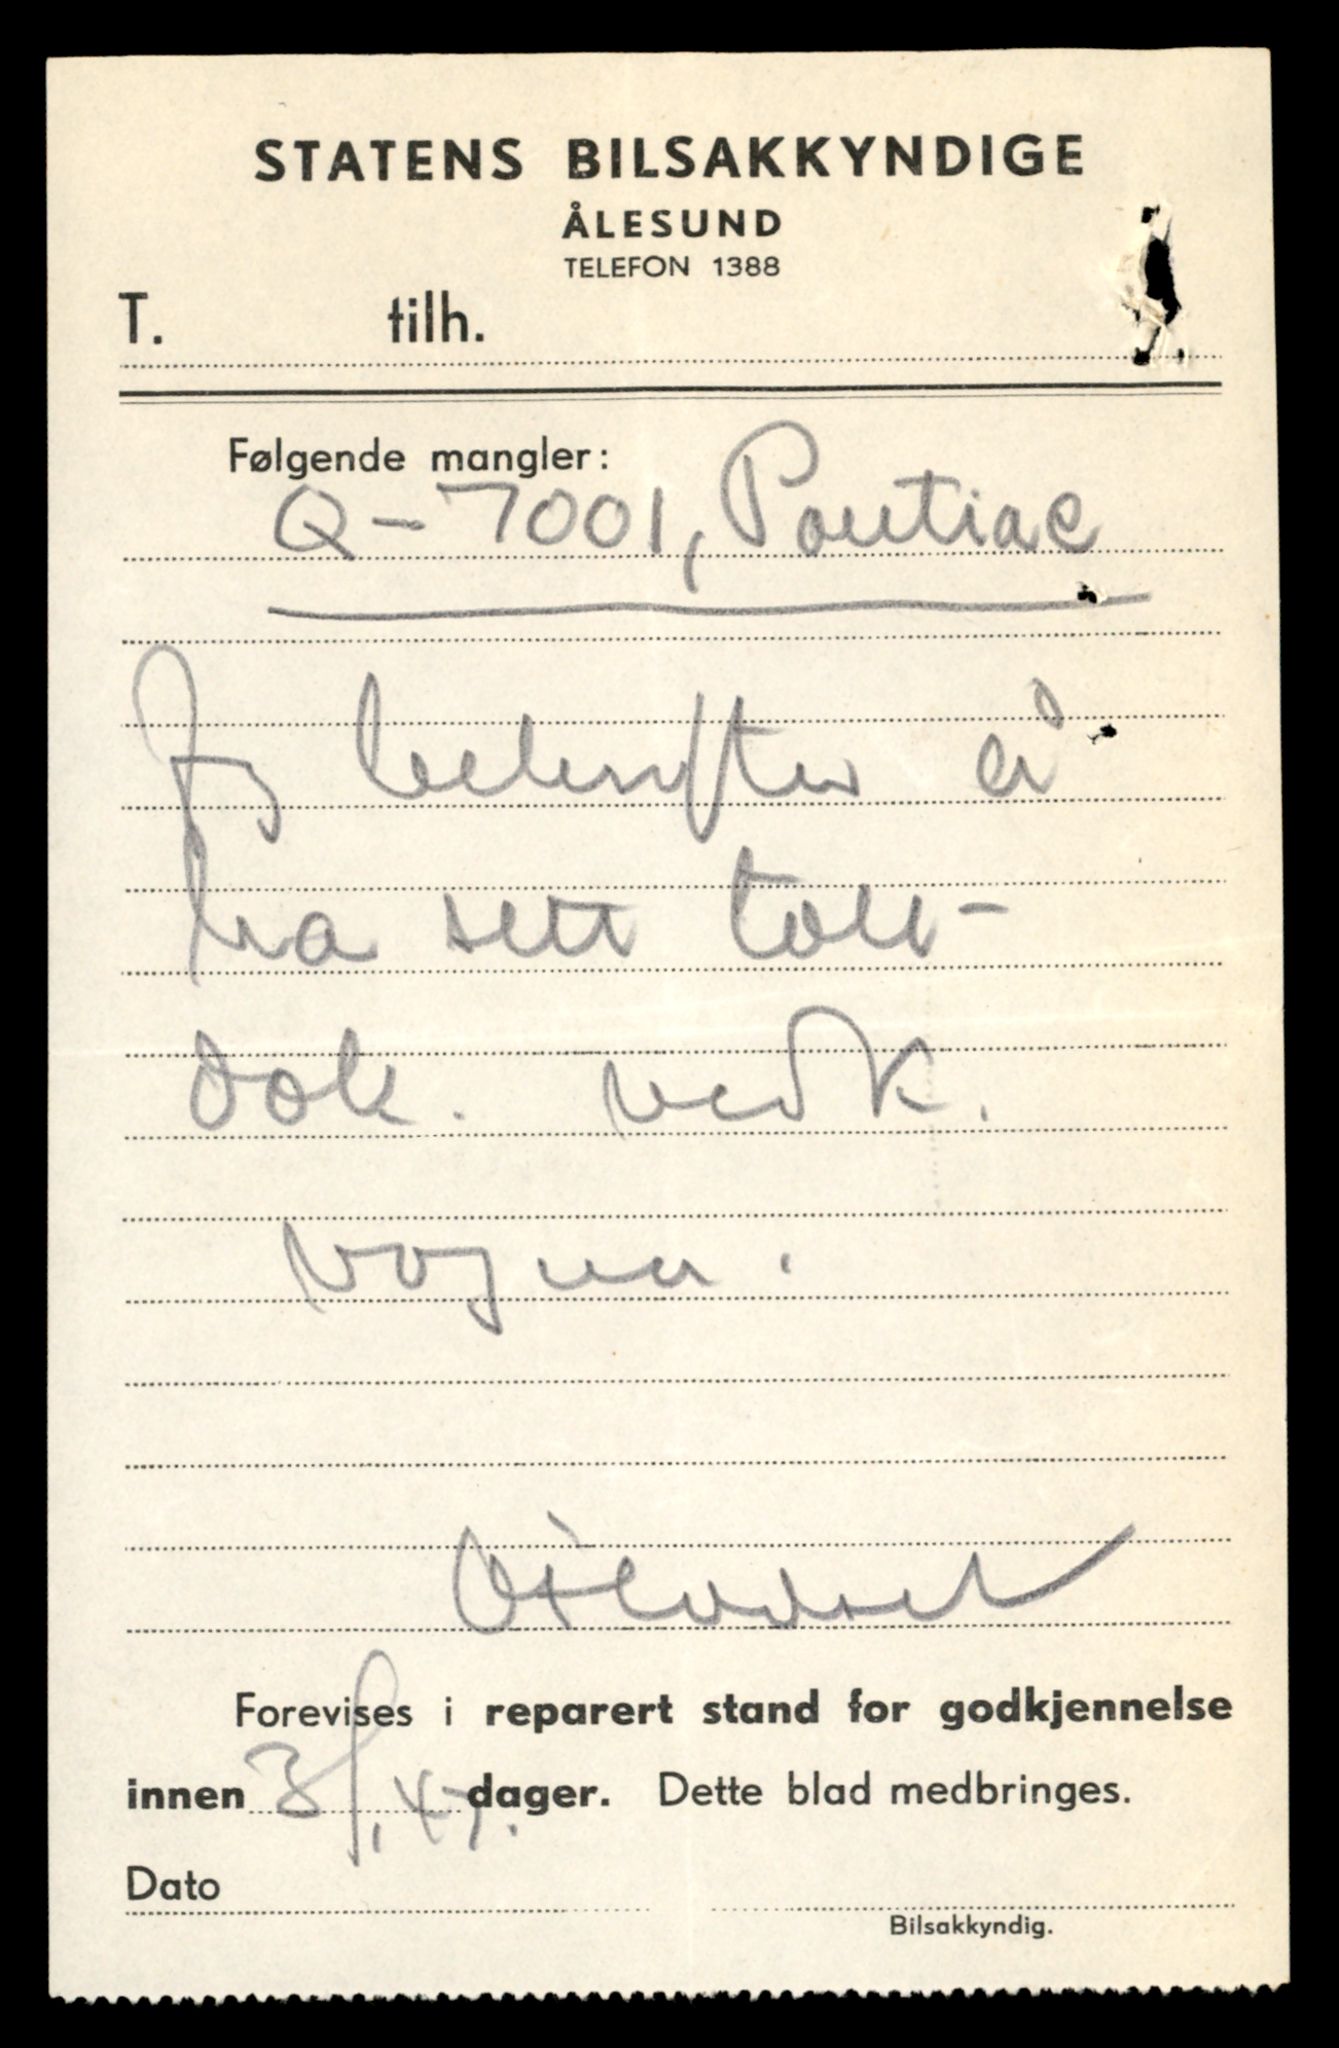 STATENS BILSAKKYNDIGE
ÅLESUND
TELEFON 1388
T. tilh.
Følgende mangler:
Q-7001, Pontiac
Jeg bekrefter å
ha sett toll-
dok. vedk.
vognen.
Forevises i reparert stand for godkjennelse
innen 3/1.47. dager. Dette blad medbringes.
Dato
Bilsakkyndig.